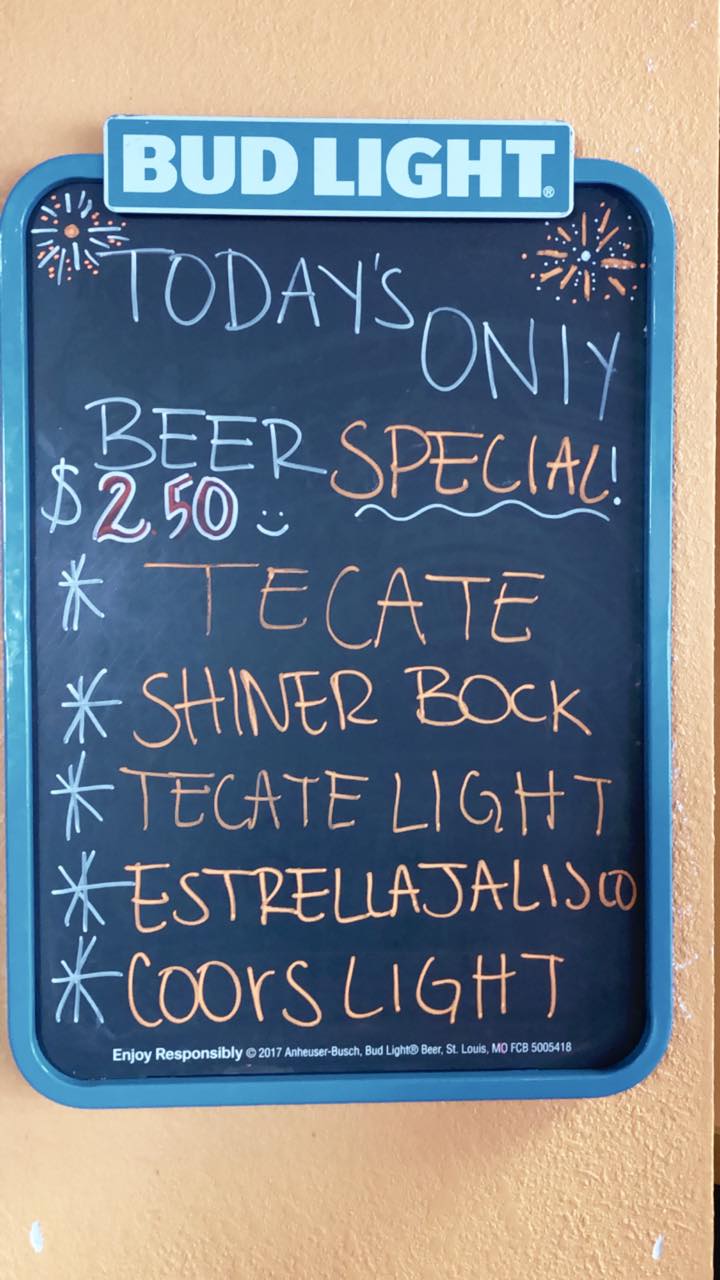 BUD LIGHT®
TODAY'S
ONlY
BEER SPECIAL!
$2.50
* TECATE
* SHINER BOCK
* TECATE LIGHT
* ESTRELLA JALISCO
* COOrS LIGHT
Enjoy Responsibly © 2017 Anheuser-Busch, Bud Light® Beer, St. Louis, MO FCB 5005418